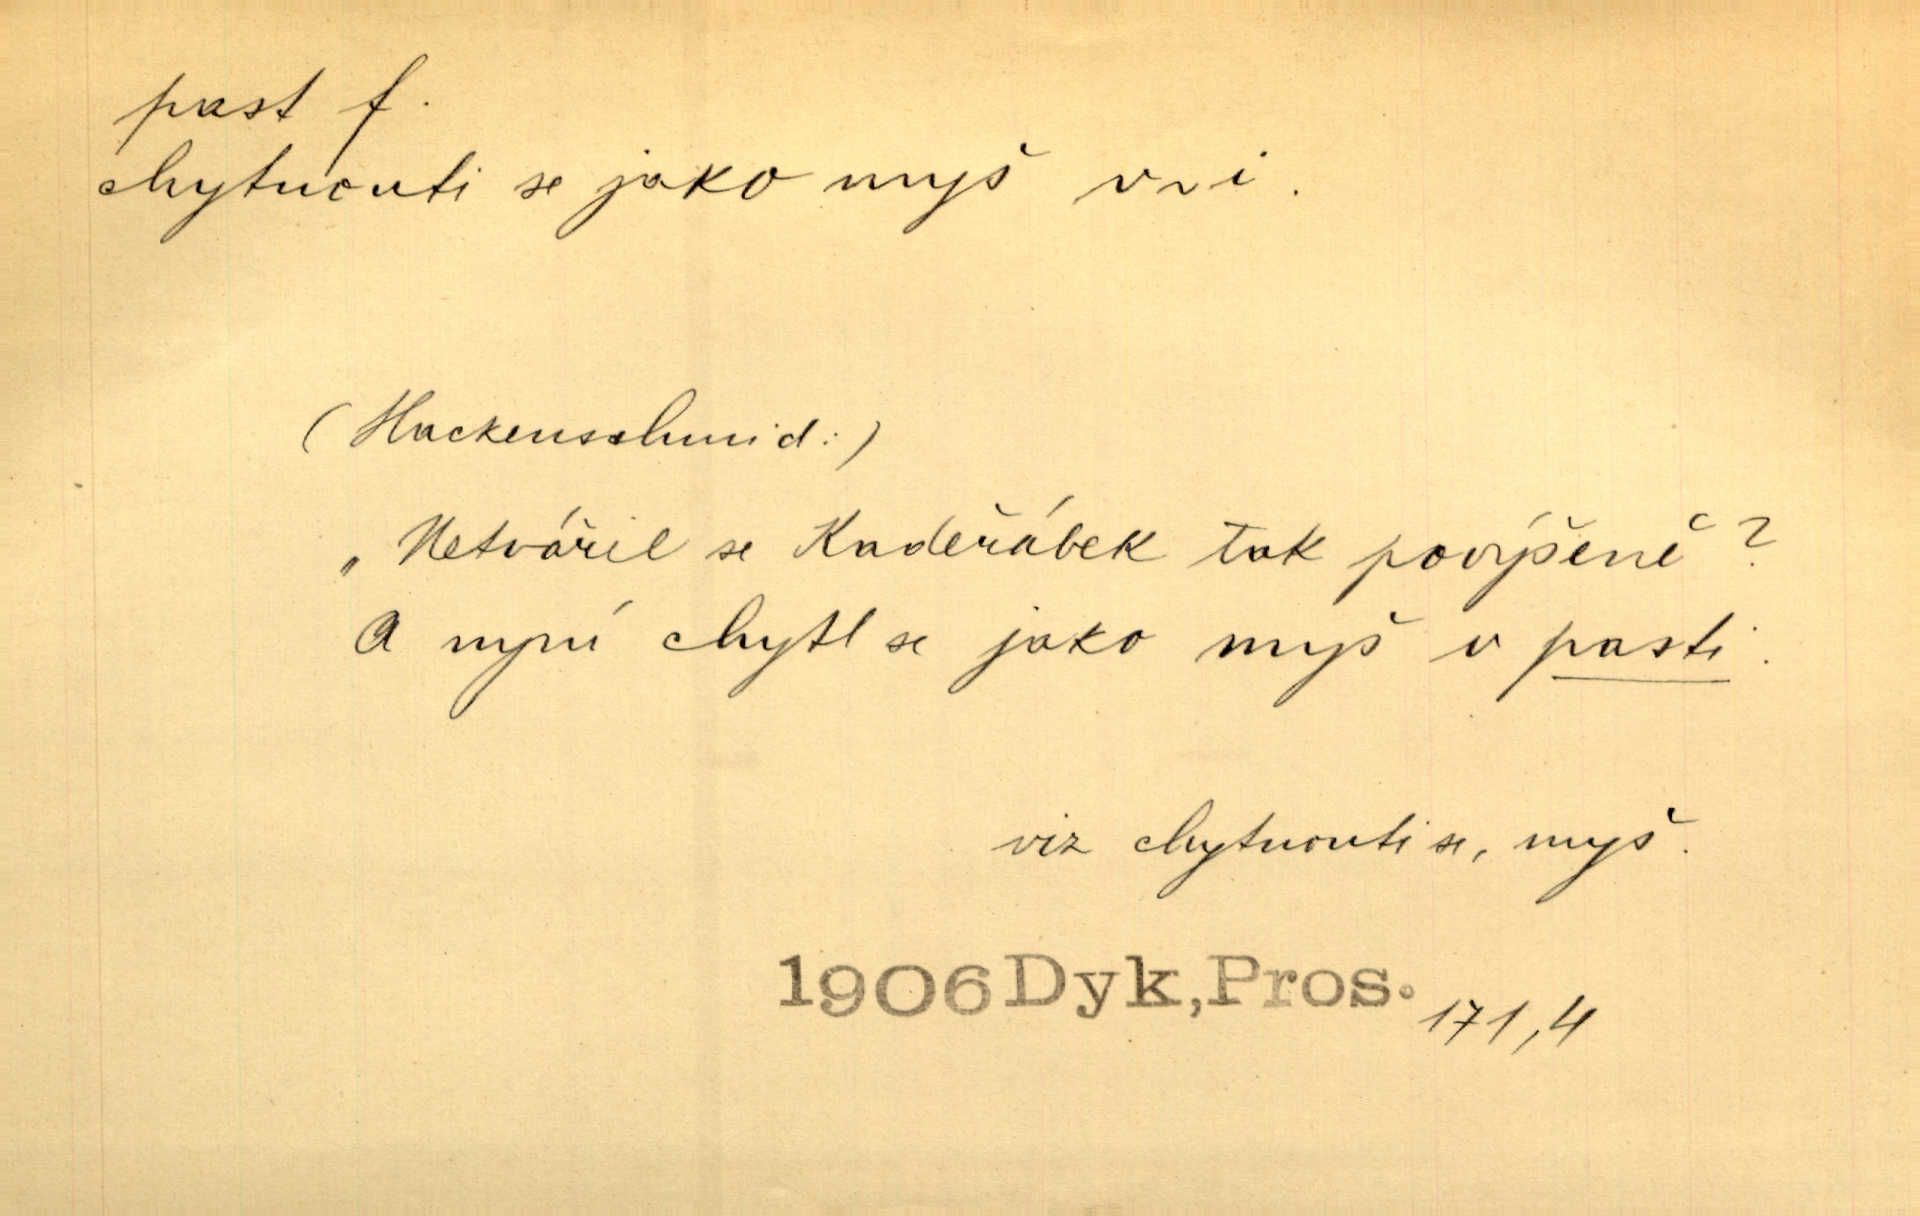 past f.
chytnouti se jako myš v ~i.
(Hackenschmid:)
„Netvářil se Kadeřábek tak povýšeně?
A nyní chytl se jako myš v pasti.
viz chytnouti se, myš.
1906 Dyk, Pros. 171,4